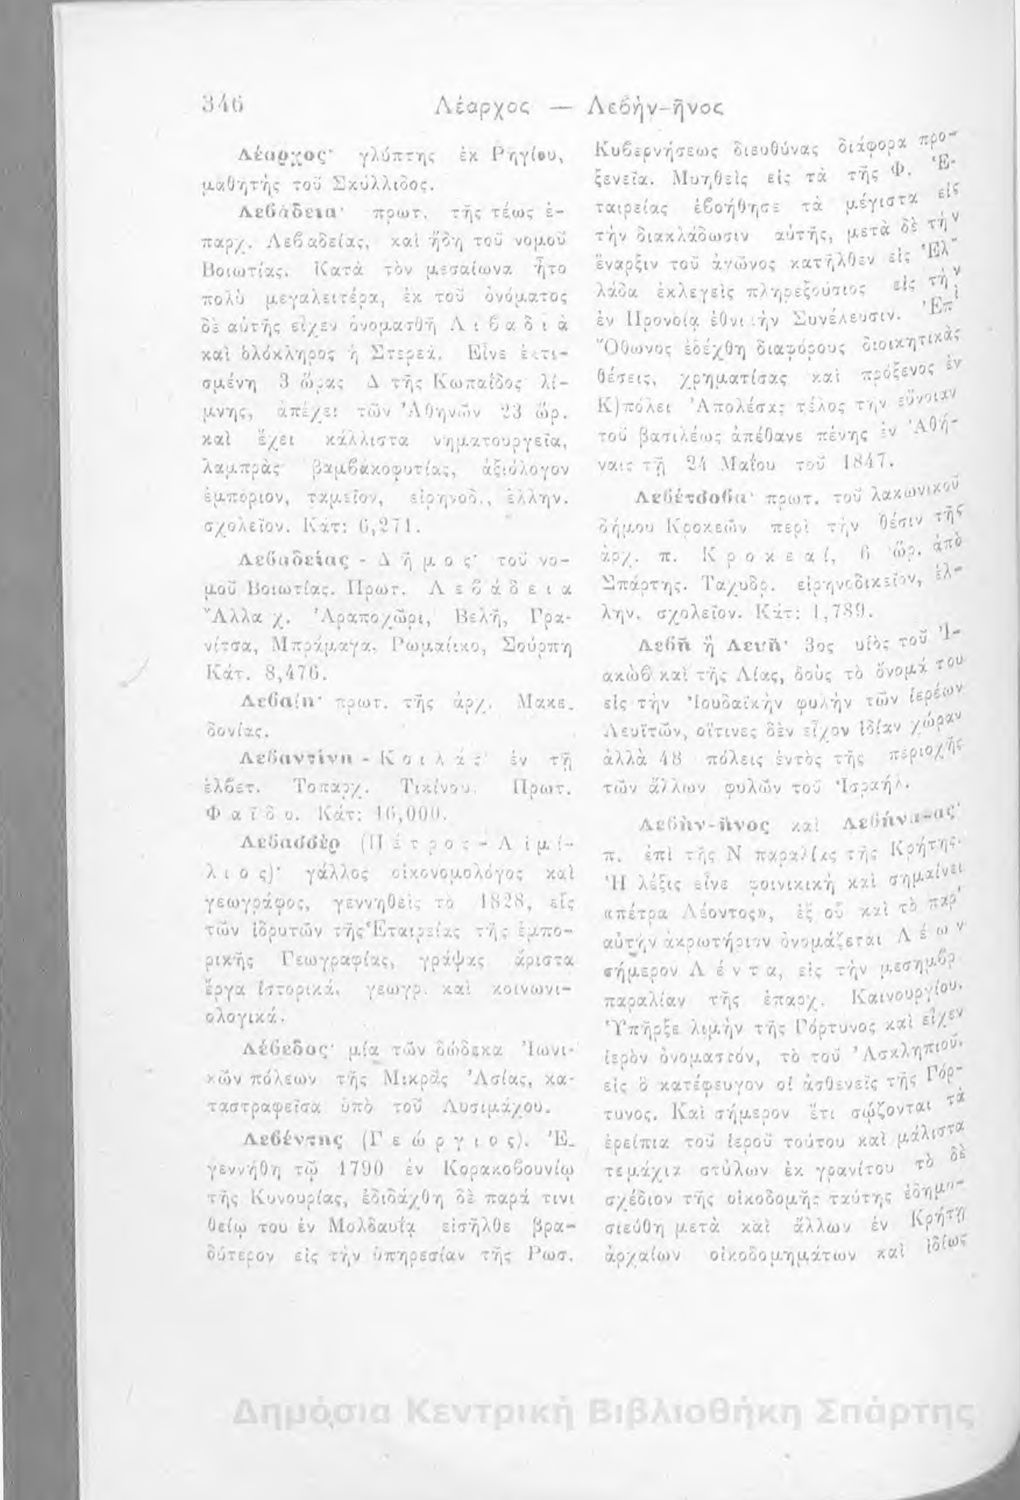 346
Λέαρχος — Λεβὴν-ῆνος
Λέαρχος· γλύπτης ἐκ Ρηγίου,
μαθητὴς τοῦ Σκύλλιδος.
Λεβάδεια· πρωτ. τῆς τέως ἐ-
παρχ. Λεβαδείας, καὶ ἤδη τοῦ νομοῦ
Βοιωτίας. Κατὰ τὸν μεσαίωνα ἦτο
πολὺ μεγαλειτέρα, ἐκ τοῦ ὀνόματος
δὲ αὐτῆς εἶχεν ὀνομασθῆ Λιβαδιὰ
καὶ ὁλόκληρος ἡ Στερεά. Εἶνε ἐκτι-
σμένη 3 ὥρας Δ τῆς Κωπαΐδος λί-
μνης, ἀπέχει τῶν Ἀθηνῶν 23 ὥρ.
καὶ ἔχει κάλλιστα νηματουργεῖα,
λαμπρὰς βαμβακοφυτίας, ἀξιόλογον
ἐμπόριον, ταμεῖον, εἰρηνοδ., ἑλλην.
σχολεῖον. Κάτ: 6,271.
Λεβαδείας - Δῆμος· τοῦ νο-
μοῦ Βοιωτίας. Πρωτ. Λεβάδεια
Ἄλλα χ. Ἀραποχῶρι, Βελῆ, Γρα-
νίτσα, Μπράμαγα, Ρωμαίικο, Σούρπη
Κάτ. 8,476.
Λεβαίη· πρωτ. τῆς ἀρχ. Μακε.
δονίας.
Λεβαντίνη - Κοιλάς· ἐν τῇ
ἑλβετ. Τοπαρχ. Τικίνου. Πρωτ.
Φαΐδο. Κάτ: 16,000.
Λεβασσὲρ (Πέτρος - Αἰμί-
λιος)· γάλλος οἰκονομολόγος καὶ
γεωγράφος, γεννηθεὶς τὸ 1828, εἷς
τῶν ἱδρυτῶν τῆς Ἑταιρείας τῆς ἐμπο-
ρικῆς Γεωγραφίας, γράψας ἄριστα
ἔργα ἱστορικά, γεωγρ. καὶ κοινωνι-
ολογικά.
Λέβεδος· μία τῶν δώδεκα Ἰωνι-
κῶν πόλεων τῆς Μικρᾶς Ἀσίας, κα-
ταστραφεῖσα ὑπὸ τοῦ Λυσιμάχου.
Λεβέντης (Γεώργιος). Ἐ-
γεννήθη τῷ 1790 ἐν Κορακοβουνίῳ
τῆς Κυνουρίας, ἐδιδάχθη δὲ παρά τινι
θείῳ του ἐν Μολδαυΐᾳ εἰσῆλθε βρα-
δύτερον εἰς τὴν ὑπηρεσίαν τῆς Ρωσ.
Κυβερνήσεως διευθύνας διάφορα προ-
ξενεῖα. Μυηθεὶς εἰς τὰ τῆς Φ. Ἑ-
ταιρείας ἐβοήθησε τὰ μέγιστα εἰς
τὴν διακλάδωσιν αὐτῆς, μετὰ δὲ τὴν
ἔναρξιν τοῦ ἀγῶνος κατῆλθεν εἰς Ἑλ-
λάδα ἐκλεγεὶς πληρεξούσιος εἰς τὴν
ἐν Προνοίᾳ ἐθνικὴν Συνέλευσιν. Ἐπ'
Ὄθωνος ἐδέχθη διαφόρους διοικητικὰς
θέσεις, χρηματίσας καὶ πρόξενος ἐν
Κ)πόλει Ἀπολέσας τέλος τὴν εὔνοιαν
τοῦ βασιλέως ἀπέθανε πένης ἐν Ἀθή-
ναις τῇ 24 Μαΐου τοῦ 1847.
Λεβέτσοβα· πρωτ. τοῦ λακωνικοῦ
δήμου Κροκεῶν περὶ τὴν θέσιν τῆς
ἀρχ. π. Κροκεαί, 6 ὥρ. ἀπὸ
Σπάρτης. Ταχυδρ. εἰρηνοδικεῖον, ἑλ-
λην. σχολεῖον. Κάτ: 1,789.
Λεβῆ ἢ Λευῆ· 3ος υἱὸς τοῦ Ἰ-
ακὼβ καὶ τῆς Λίας, δοὺς τὸ ὄνομά του
εἰς τὴν Ἰουδαϊκὴν φυλὴν τῶν ἱερέων
Λευϊτῶν, οἵτινες δὲν εἶχον ἰδίαν χώραν
ἀλλὰ 48 πόλεις ἐντὸς τῆς περιοχῆς
τῶν ἄλλων φυλῶν τοῦ Ἰσραήλ.
Λεβὴν-ῆνος καὶ Λεβήνα-ας·
π. ἐπὶ τῆς Ν παραλίας τῆς Κρήτης.
Ἡ λέξις εἶνε φοινικικὴ καὶ σημαίνει
«πέτρα Λέοντος», ἐξ οὗ καὶ τὸ παρ'
αὐτὴν ἀκρωτήριον ὀνομάζεται Λέων
σήμερον Λέντα, εἰς τὴν μεσημβρ.
παραλίαν τῆς ἐπαρχ. Καινουργίου.
Ὑπῆρξε λιμὴν τῆς Γόρτυνος καὶ εἶχεν
ἱερὸν ὀνομαστόν, τὸ τοῦ Ἀσκληπιοῦ,
εἰς ὃ κατέφευγον οἱ ἀσθενεῖς τῆς Γόρ-
τυνος. Καὶ σήμερον ἔτι σῴζονται τὰ
ἐρείπια τοῦ ἱεροῦ τούτου καὶ μάλιστα
τεμάχια στύλων ἐκ γρανίτου τὸ δὲ
σχέδιον τῆς οἰκοδομῆς ταύτης ἐδημο-
σιεύθη μετὰ καὶ ἄλλων ἐν Κρήτῃ
ἀρχαίων οἰκοδομημάτων καὶ ἰδίως
Δημόσια Κεντρική Βιβλιοθήκη Σπάρτης